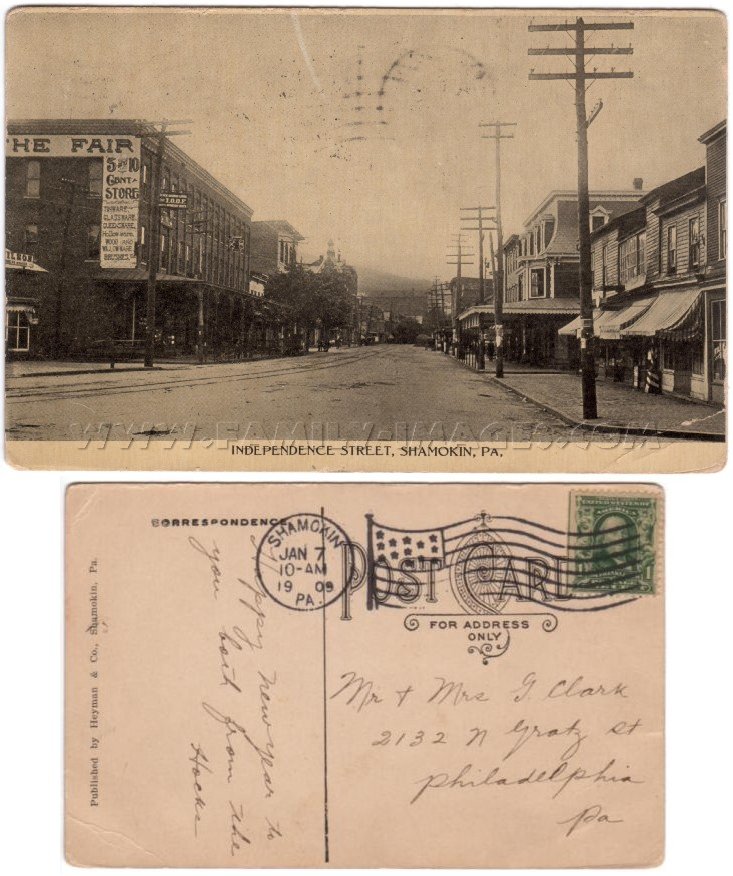 THE FAIR
5 AND 10
CENT
STORE
TINWARE
GLASSWARE
QUEENSWARE
Hollow ware
WOOD AND
WILLOW WARE
BRUSHES
I.O.O.F.
WWW.FAMILY-IMAGES.COM
INDEPENDENCE STREET, SHAMOKIN, PA,
CORRESPONDENCE
SHAMOKIN
JAN 7
10-AM
1909
PA.
POST CARD
FOR ADDRESS
ONLY
Published by Heyman & Co., Shamokin, Pa.
Happy New year to
you both from the
Hocks
Mr + Mrs G. Clark
2132 N Gratz st
Philadelphia
Pa